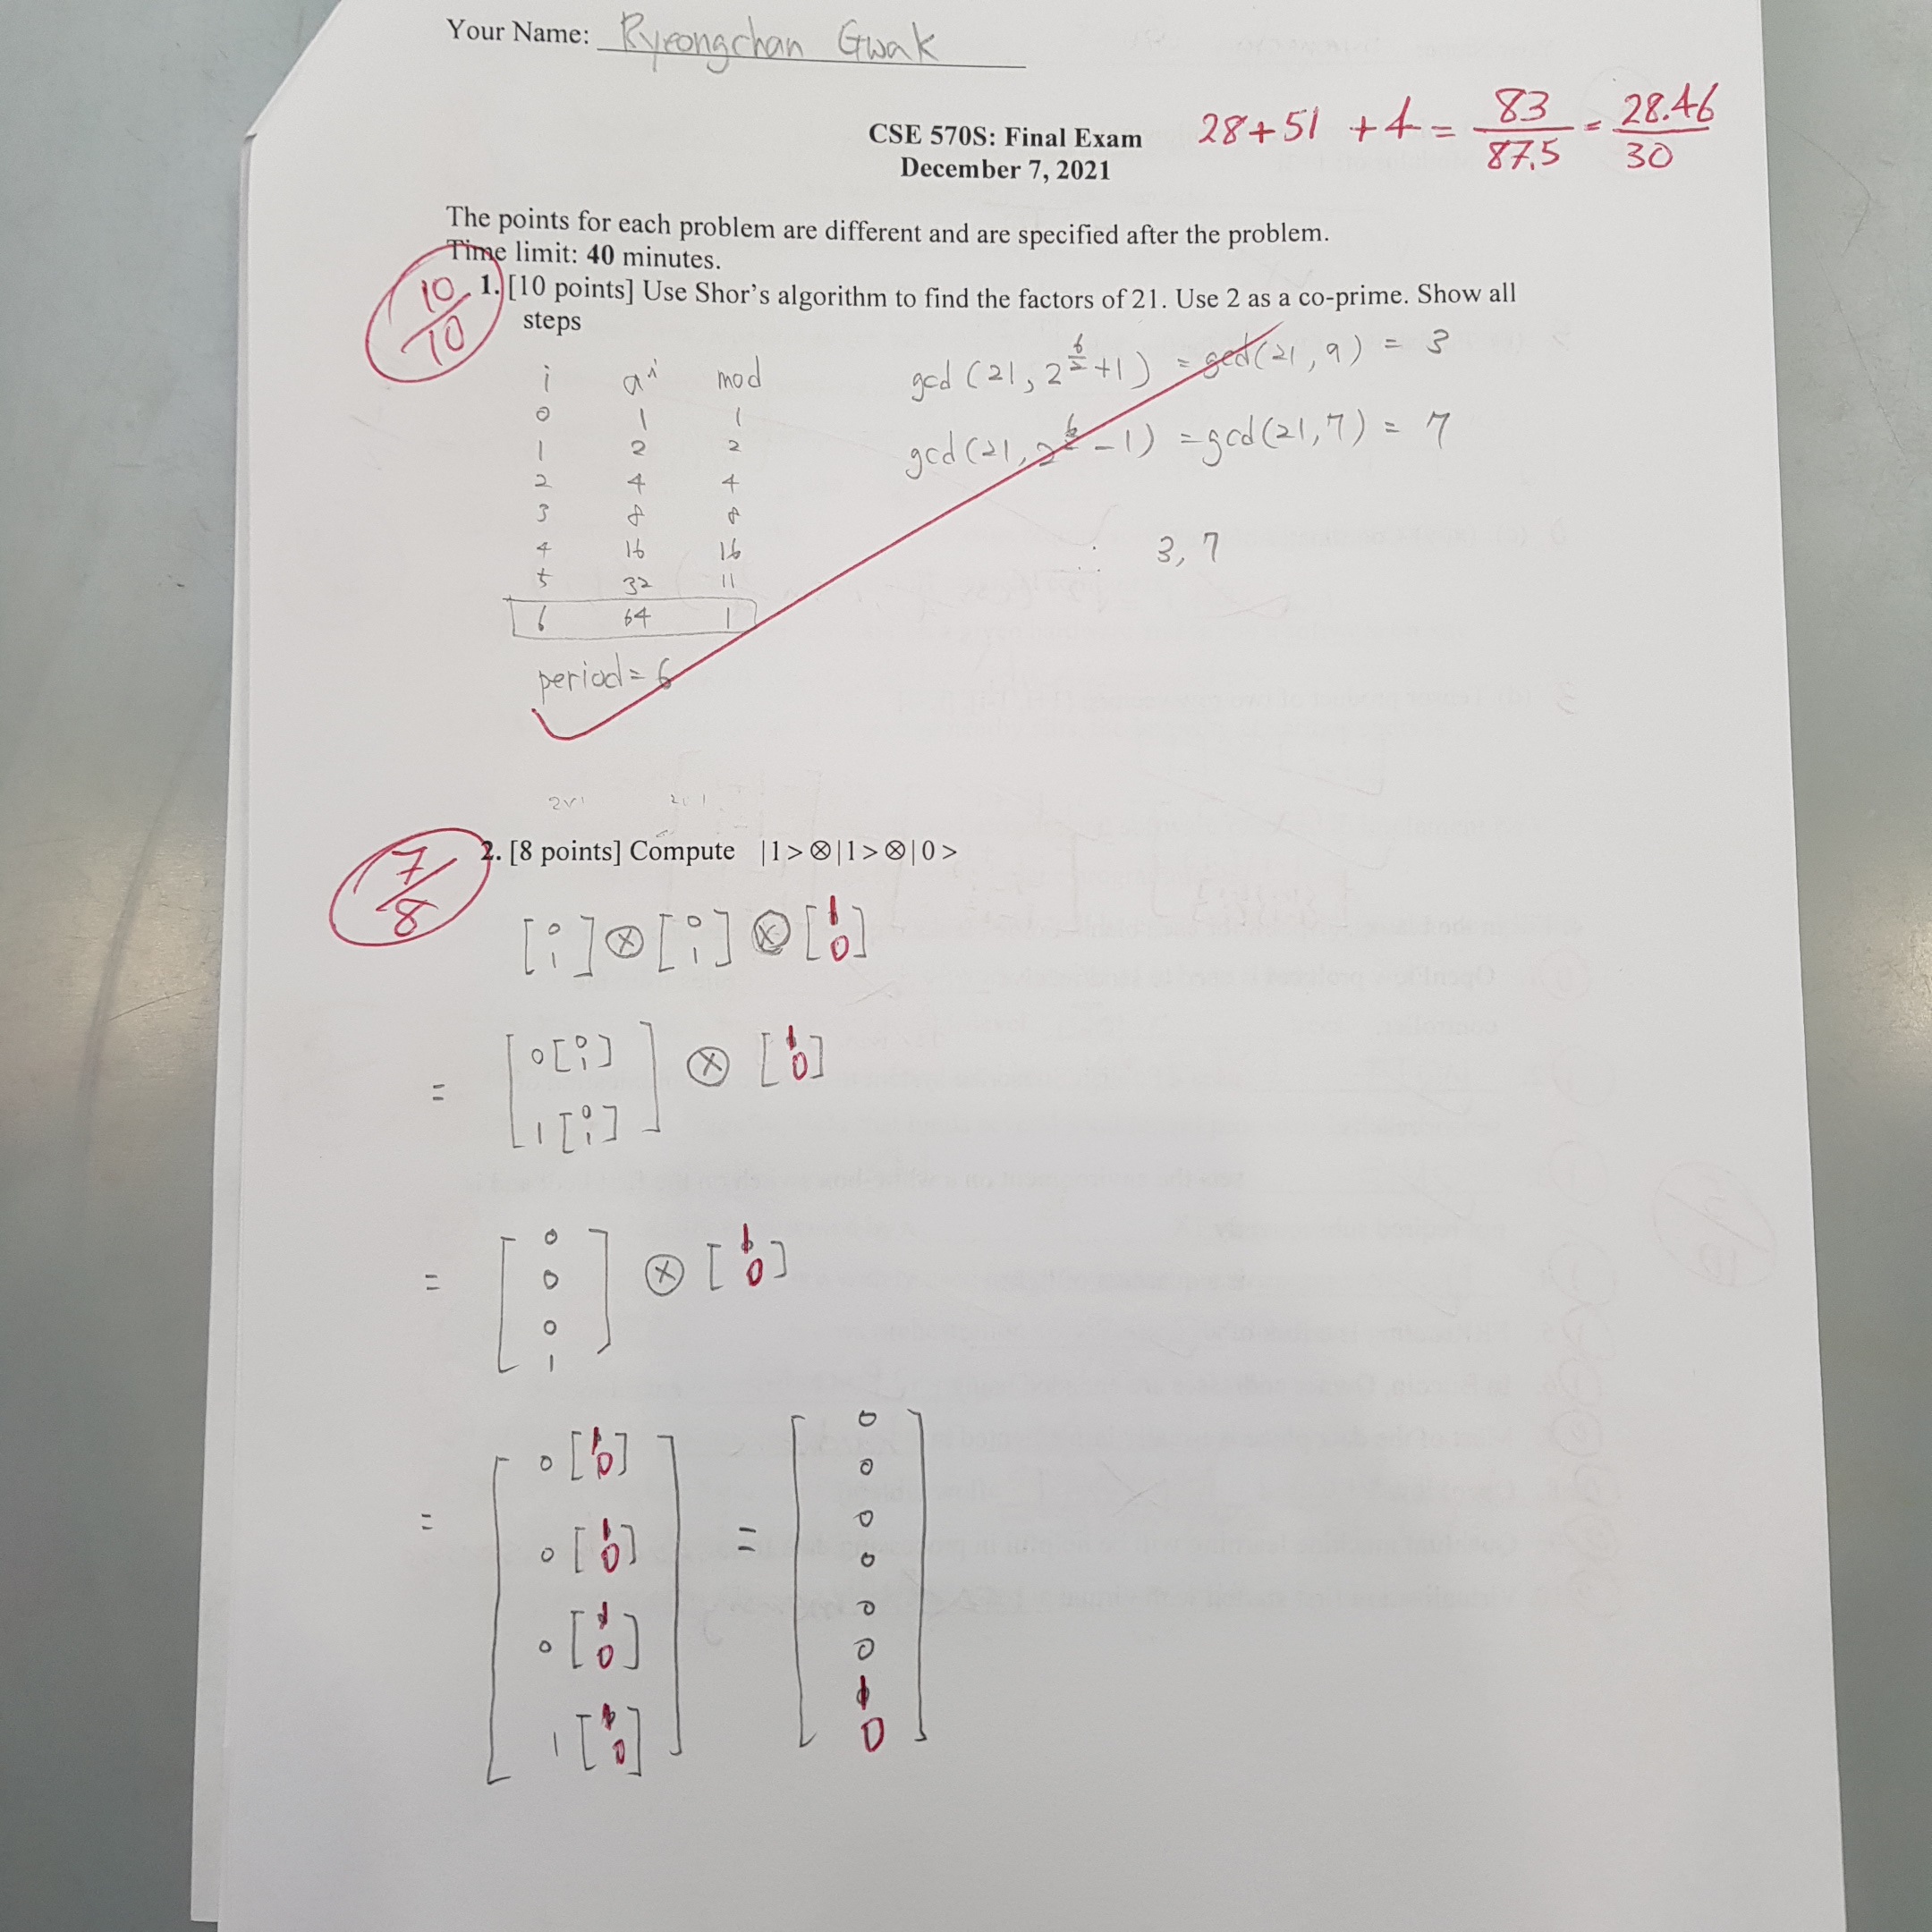 Your Name: Ryeongchan Gwak
CSE 570S: Final Exam
December 7, 2021
28+51 +4 = 83/87.5 = 28.46/30
The points for each problem are different and are specified after the problem.
Time limit: 40 minutes.
10/10
1. [10 points] Use Shor's algorithm to find the factors of 21. Use 2 as a co-prime. Show all
steps
i a^i mod
0 1 1
1 2 2
2 4 4
3 8 8
4 16 16
5 32 11
6 64 1
period = 6
gcd (21, 2^(6/2)+1) = gcd(21, 9) = 3
gcd (21, 2^(6/2)-1) = gcd(21, 7) = 7
∴ 3, 7
7/8
2. [8 points] Compute |1>⊗|1>⊗|0>
[0 1] ⊗ [0 1] ⊗ [1 0]
= [0[0 1] 1[0 1]] ⊗ [1 0]
= [0 0 0 1] ⊗ [1 0]
= [0[1 0] 0[1 0] 0[1 0] 1[1 0]] = [0 0 0 0 0 0 1 0]